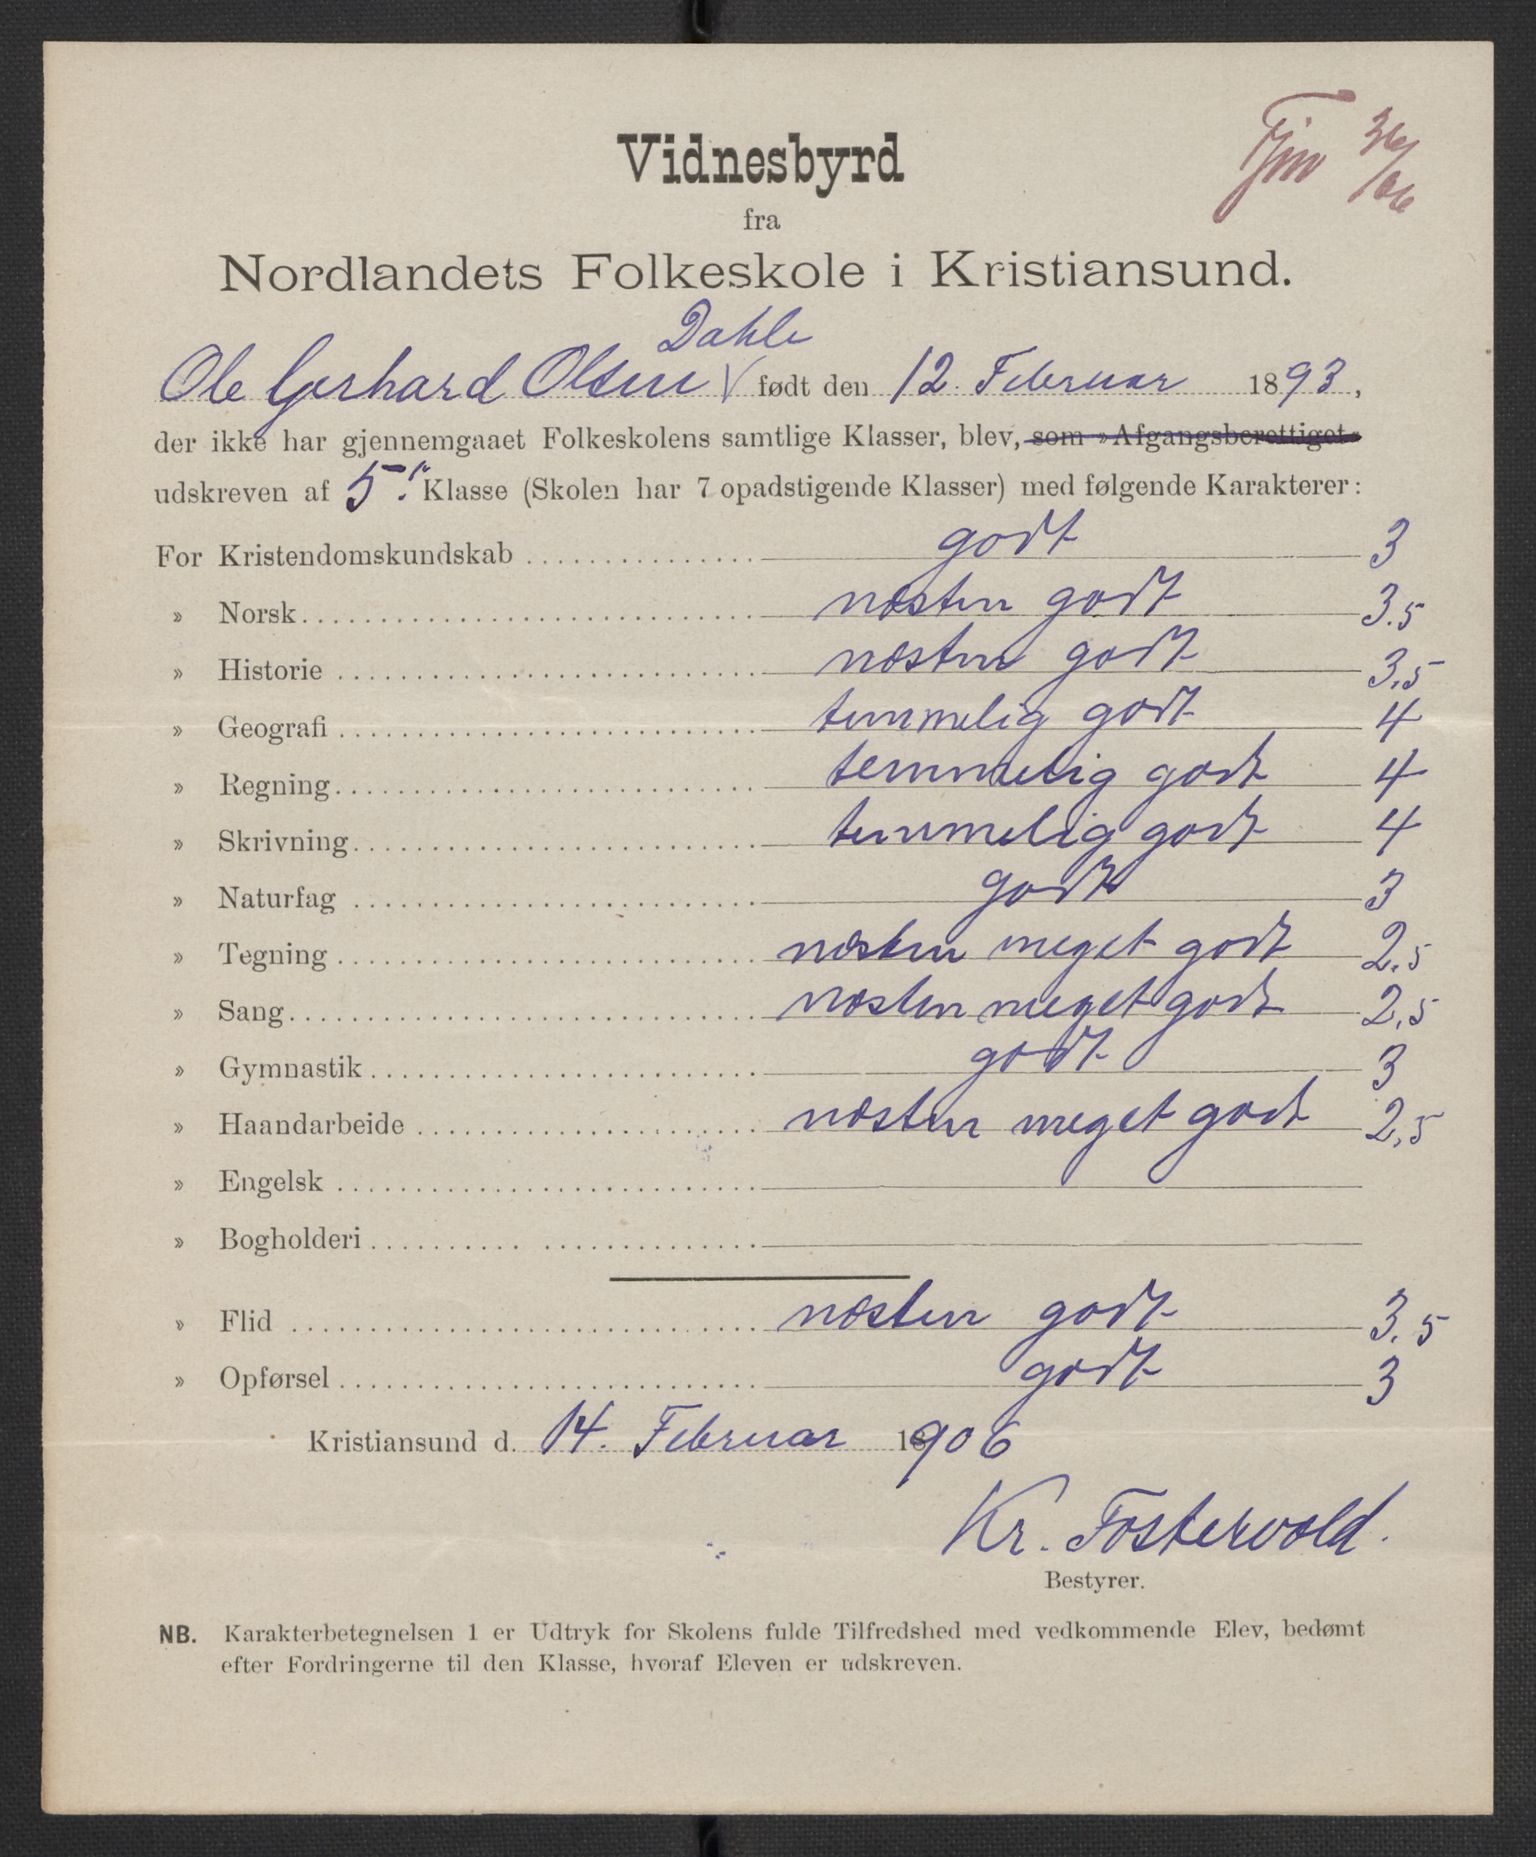 Vidnesbyrd
fra
Nordlandets Folkeskole i Kristiansund.
Dahle
Ole Gerhard Olsen √ født den 12. Februar 1893,
der ikke har gjennemgaaet Folkeskolens samtlige Klasser, blev, som »Afgangsberettiget«
udskreven af 5. Klasse (Skolen har 7 opadstigende Klasser) med følgende Karakterer:
For Kristendomskundskab godt 3
» Norsk næsten godt 3.5
» Historie næsten godt 3,5
» Geografi temmelig godt 4
» Regning temmelig godt 4
» Skrivning temmelig godt 4
» Naturfag godt 3
» Tegning næsten meget godt 2,5
» Sang næsten meget godt 2,5
» Gymnastik godt 3
» Haandarbeide næsten meget godt 2,5
» Engelsk
» Bogholderi
» Flid næsten godt 3.5
» Opførsel godt 3
Kristiansund d. 14. Februar 1906
Kr. Fostervold.
Bestyrer.
NB. Karakterbetegnelsen 1 er Udtryk for Skolens fulde Tilfredshed med vedkommende Elev, bedømt
efter Fordringerne til den Klasse, hvoraf Eleven er udskreven.